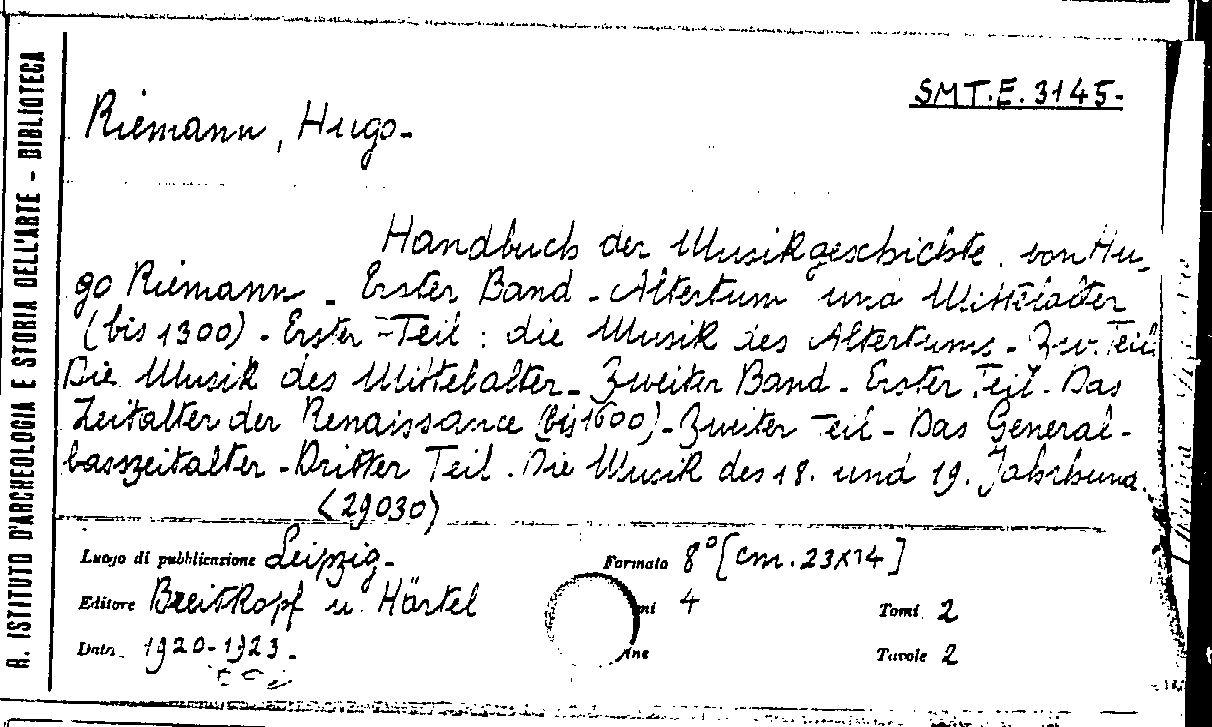 R. ISTITUTO D'ARCHEOLOGIA E STORIA DELL'ARTE - BIBLIOTECA
SMT.E. 3145-
Riemann, Hugo-
Handbuch der Musikgeschichte von Hu-
go Riemann - Erster Band - Altertum und Mittelalter
(bis 1300) - Erster - Teil : die Musik des Altertums - Zw. Teil
Die Musik des Mittelalter - Zweiter Band - Erster Teil - Das
Zeitalter der Renaissance (bis 1600) - Zweiter Teil - Das General-
basszeitalter - Dritter Teil. Die Musik des 18. und 19. Jahrhund.
(29030)
Luogo di pubblicazione Leipzig- Formato 8° [cm. 23x14]
Editore Breitkopf u. Härtel 4 Tomi 2
Data 1920-1923. Tavole 2